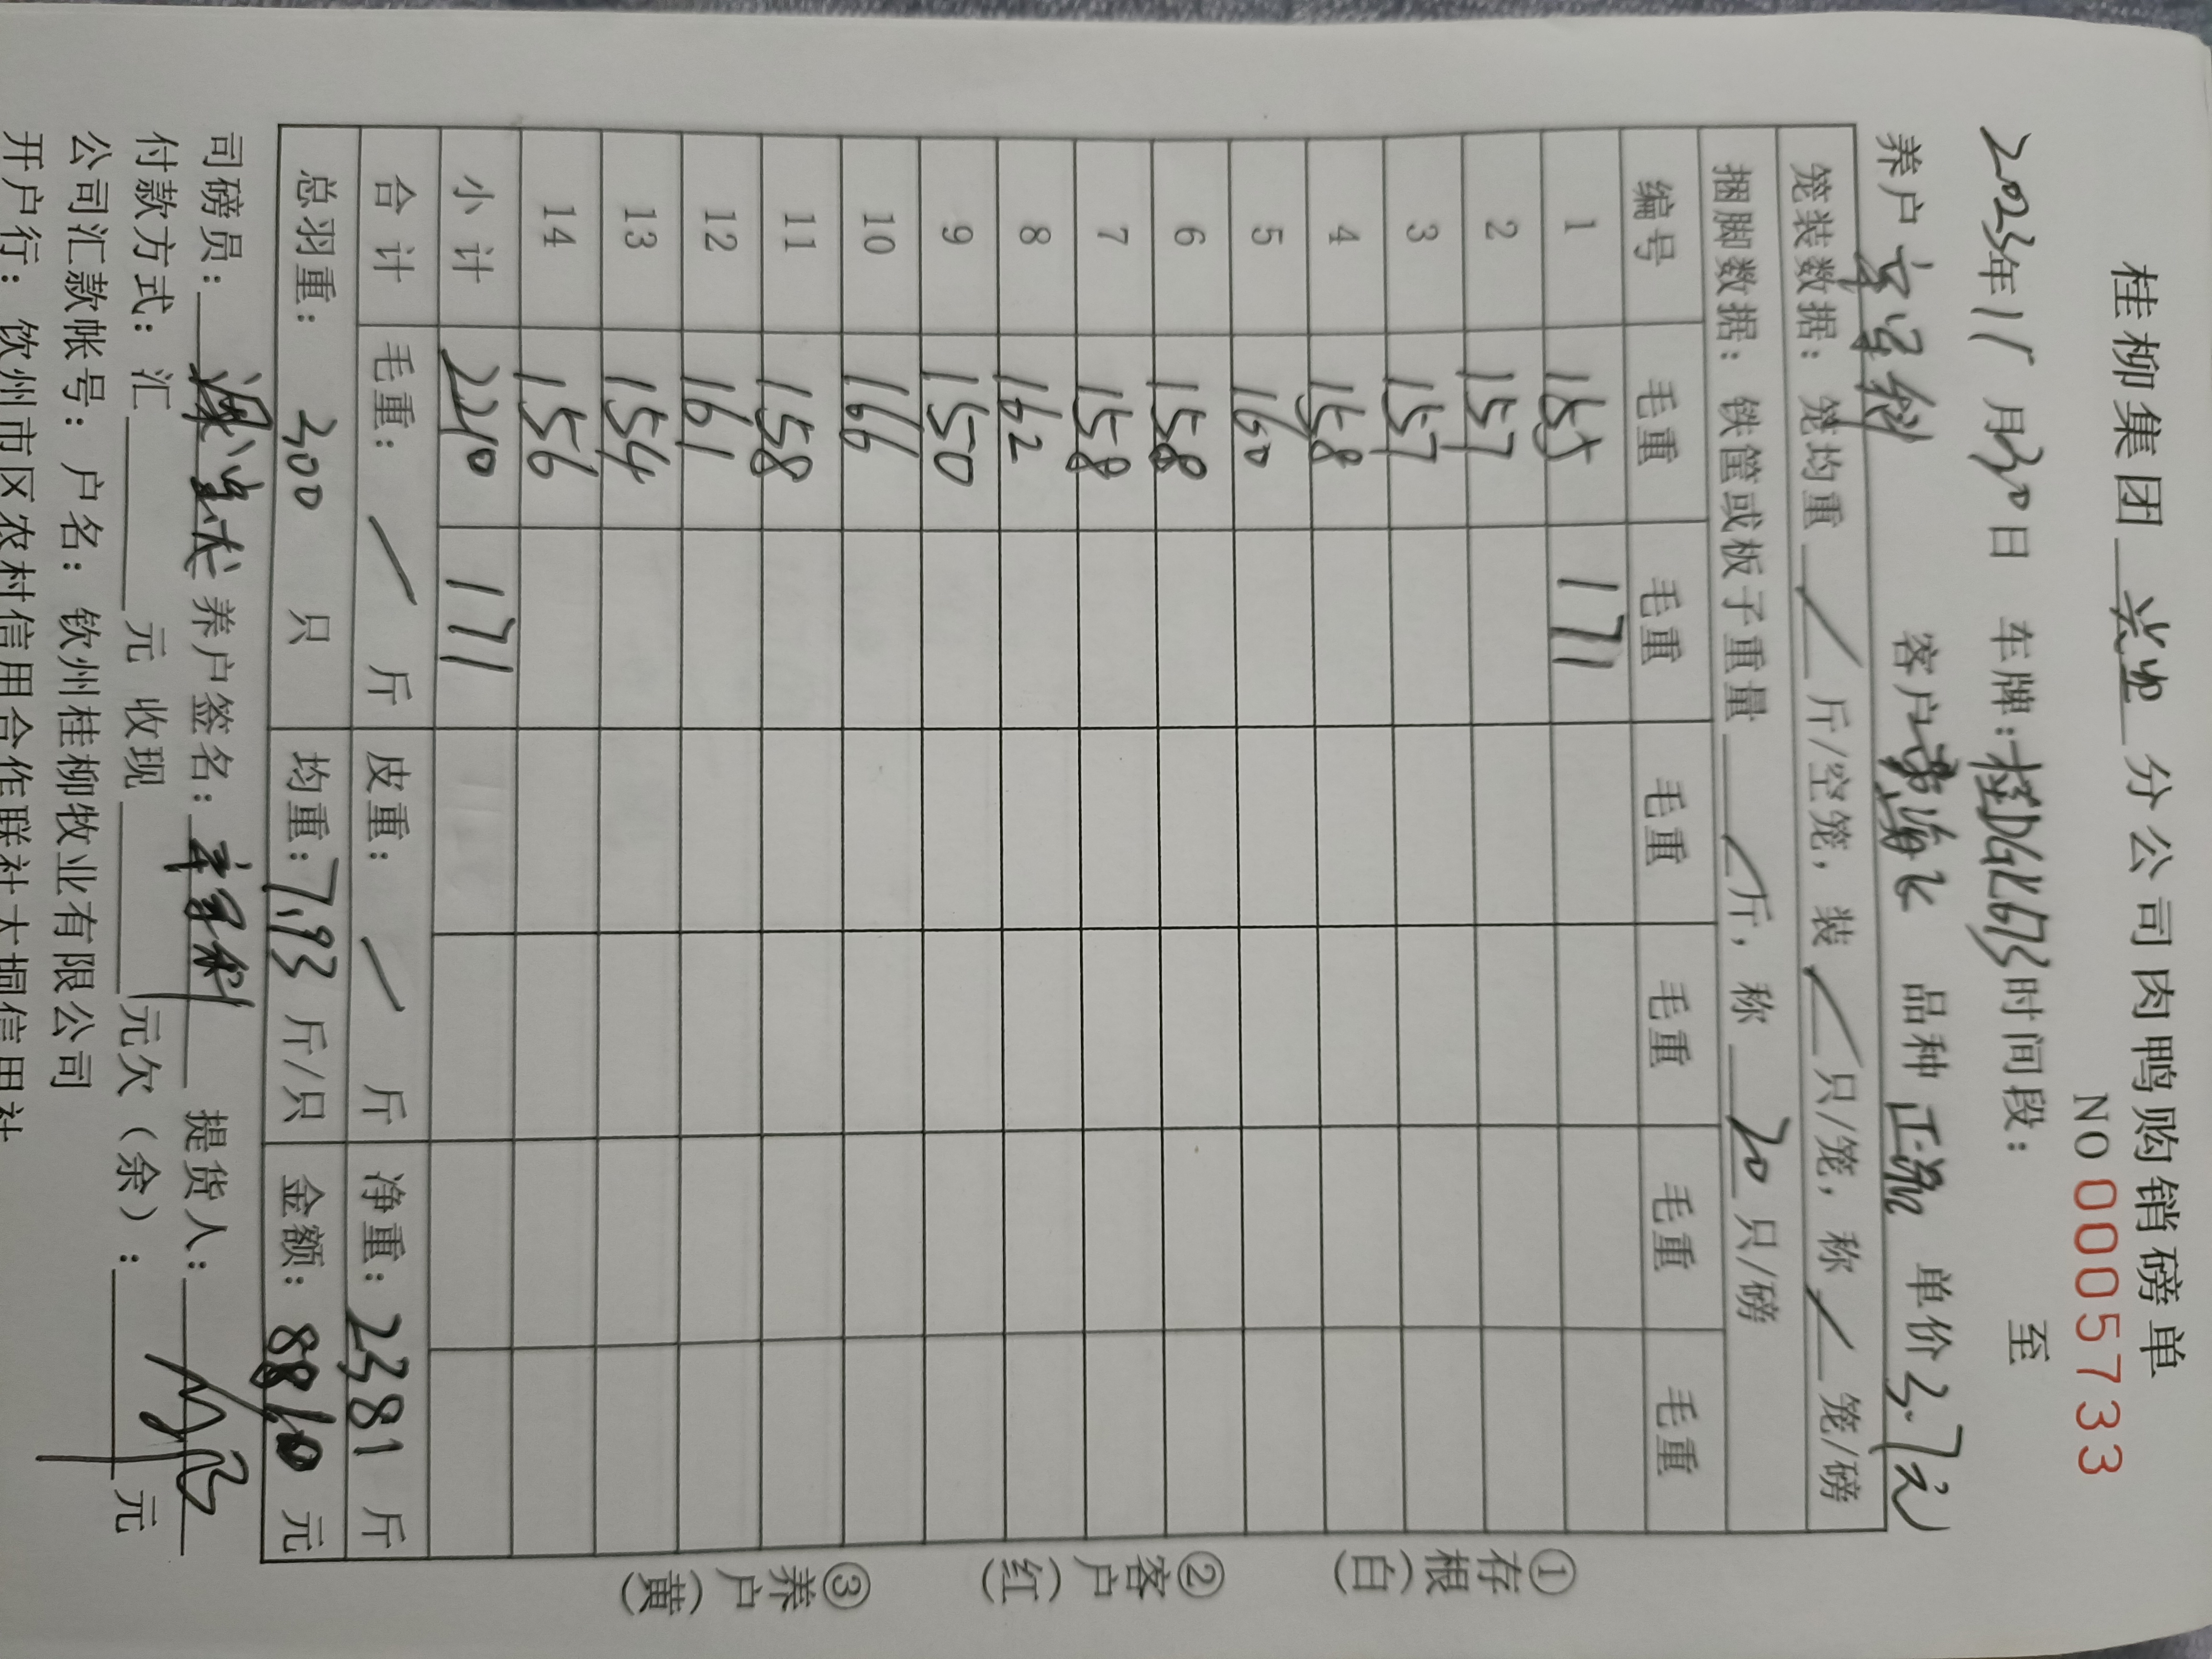 桂柳集团 分公司肉鸭购销磅单
NO 0005733
2023年11月30日 车牌:桂DGK673时间段: 至
养户 客户 品种 正番 单价 3.7元
笼装数据: 笼均重 / 斤/空笼, 装 / 只/笼, 称 / 笼/磅
捆脚数据: 铁筐或板子重量 / 斤, 称 20 只/磅
编号 毛重 毛重 毛重 毛重 毛重 毛重
1 165 171
2 157
3 157
4 158
5 160
6 158
7 158
8 162
9 150
10 166
11 158
12 161
13 154
14 156
小计 2210 171
合计 毛重: / 斤 皮重: / 斤 净重: 2381 斤
总羽重: 300 只 均重: 7.93 斤/只 金额: 8810 元
司磅员: 养户签名: 提货人:
付款方式: 汇 元 收现 元欠(余): 元
公司汇款帐号: 户名: 钦州桂柳牧业有限公司
开户行: 钦州市区农村信用合作联社大垌信用社
①存根(白) ②客户(红) ③养户(黄)